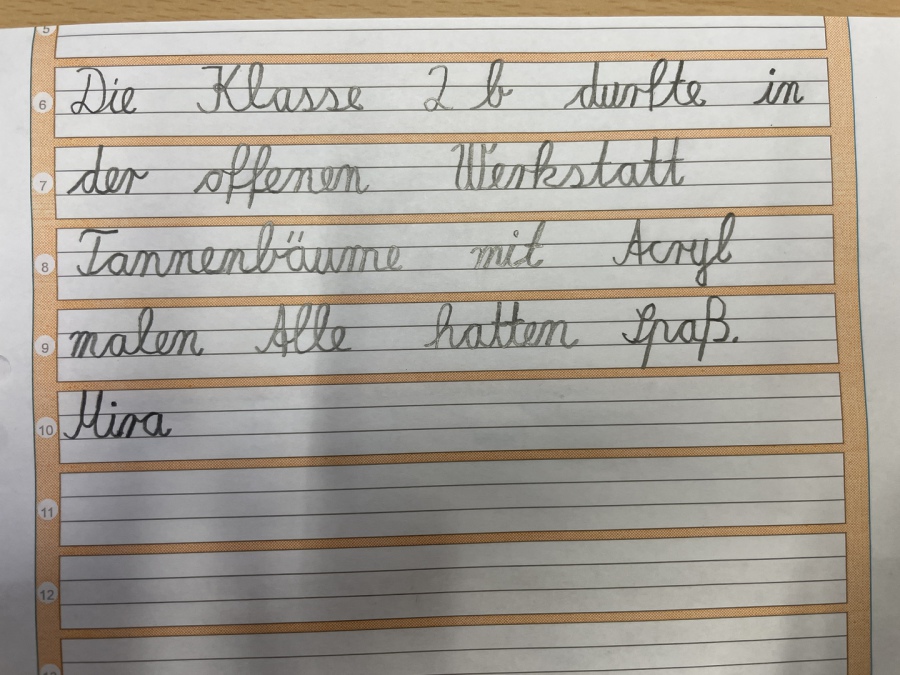 5
6 Die Klasse 2 b durfte in
7 der offenen Werkstatt
8 Tannenbäume mit Acryl
9 malen Alle hatten Spaß.
10 Mira
11
12